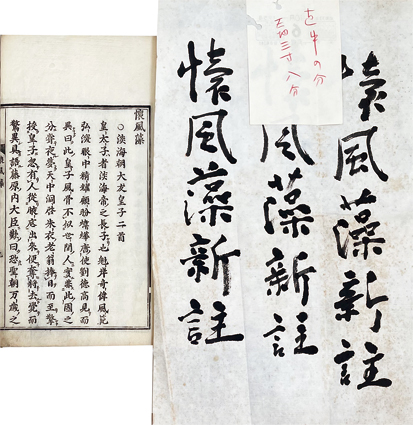 懷風藻
○淡海朝大友皇子二首
皇太子者淡海帝之長子也魁岸奇偉風範
弘深眼中精耀顧盼煒燁唐使劉德高見而
異曰此皇子風骨不似世間人實非此國之
分嘗夜夢天中洞啓朱衣老翁捧日而至擎
授皇子忽有人從腋底出來便奪將去覺而
驚異具語藤原内大臣歎曰恐聖朝萬歲之
中の分
三寸八分
懷風藻新註
風藻新註
懷風藻新註